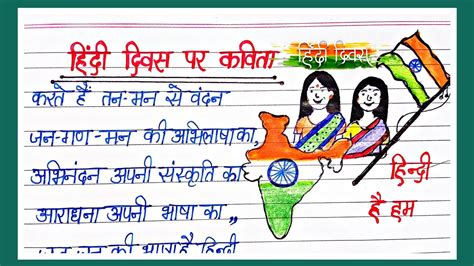 हिंदी दिवस पर कविता
हिंदी दिवस
करते हैं तन-मन से वंदन
जन-गण-मन की अभिलाषा का,
अभिनंदन अपनी संस्कृति का
आराधना अपनी भाषा का,,
हिन्दी
है हम
की भाषा है हिन्दी